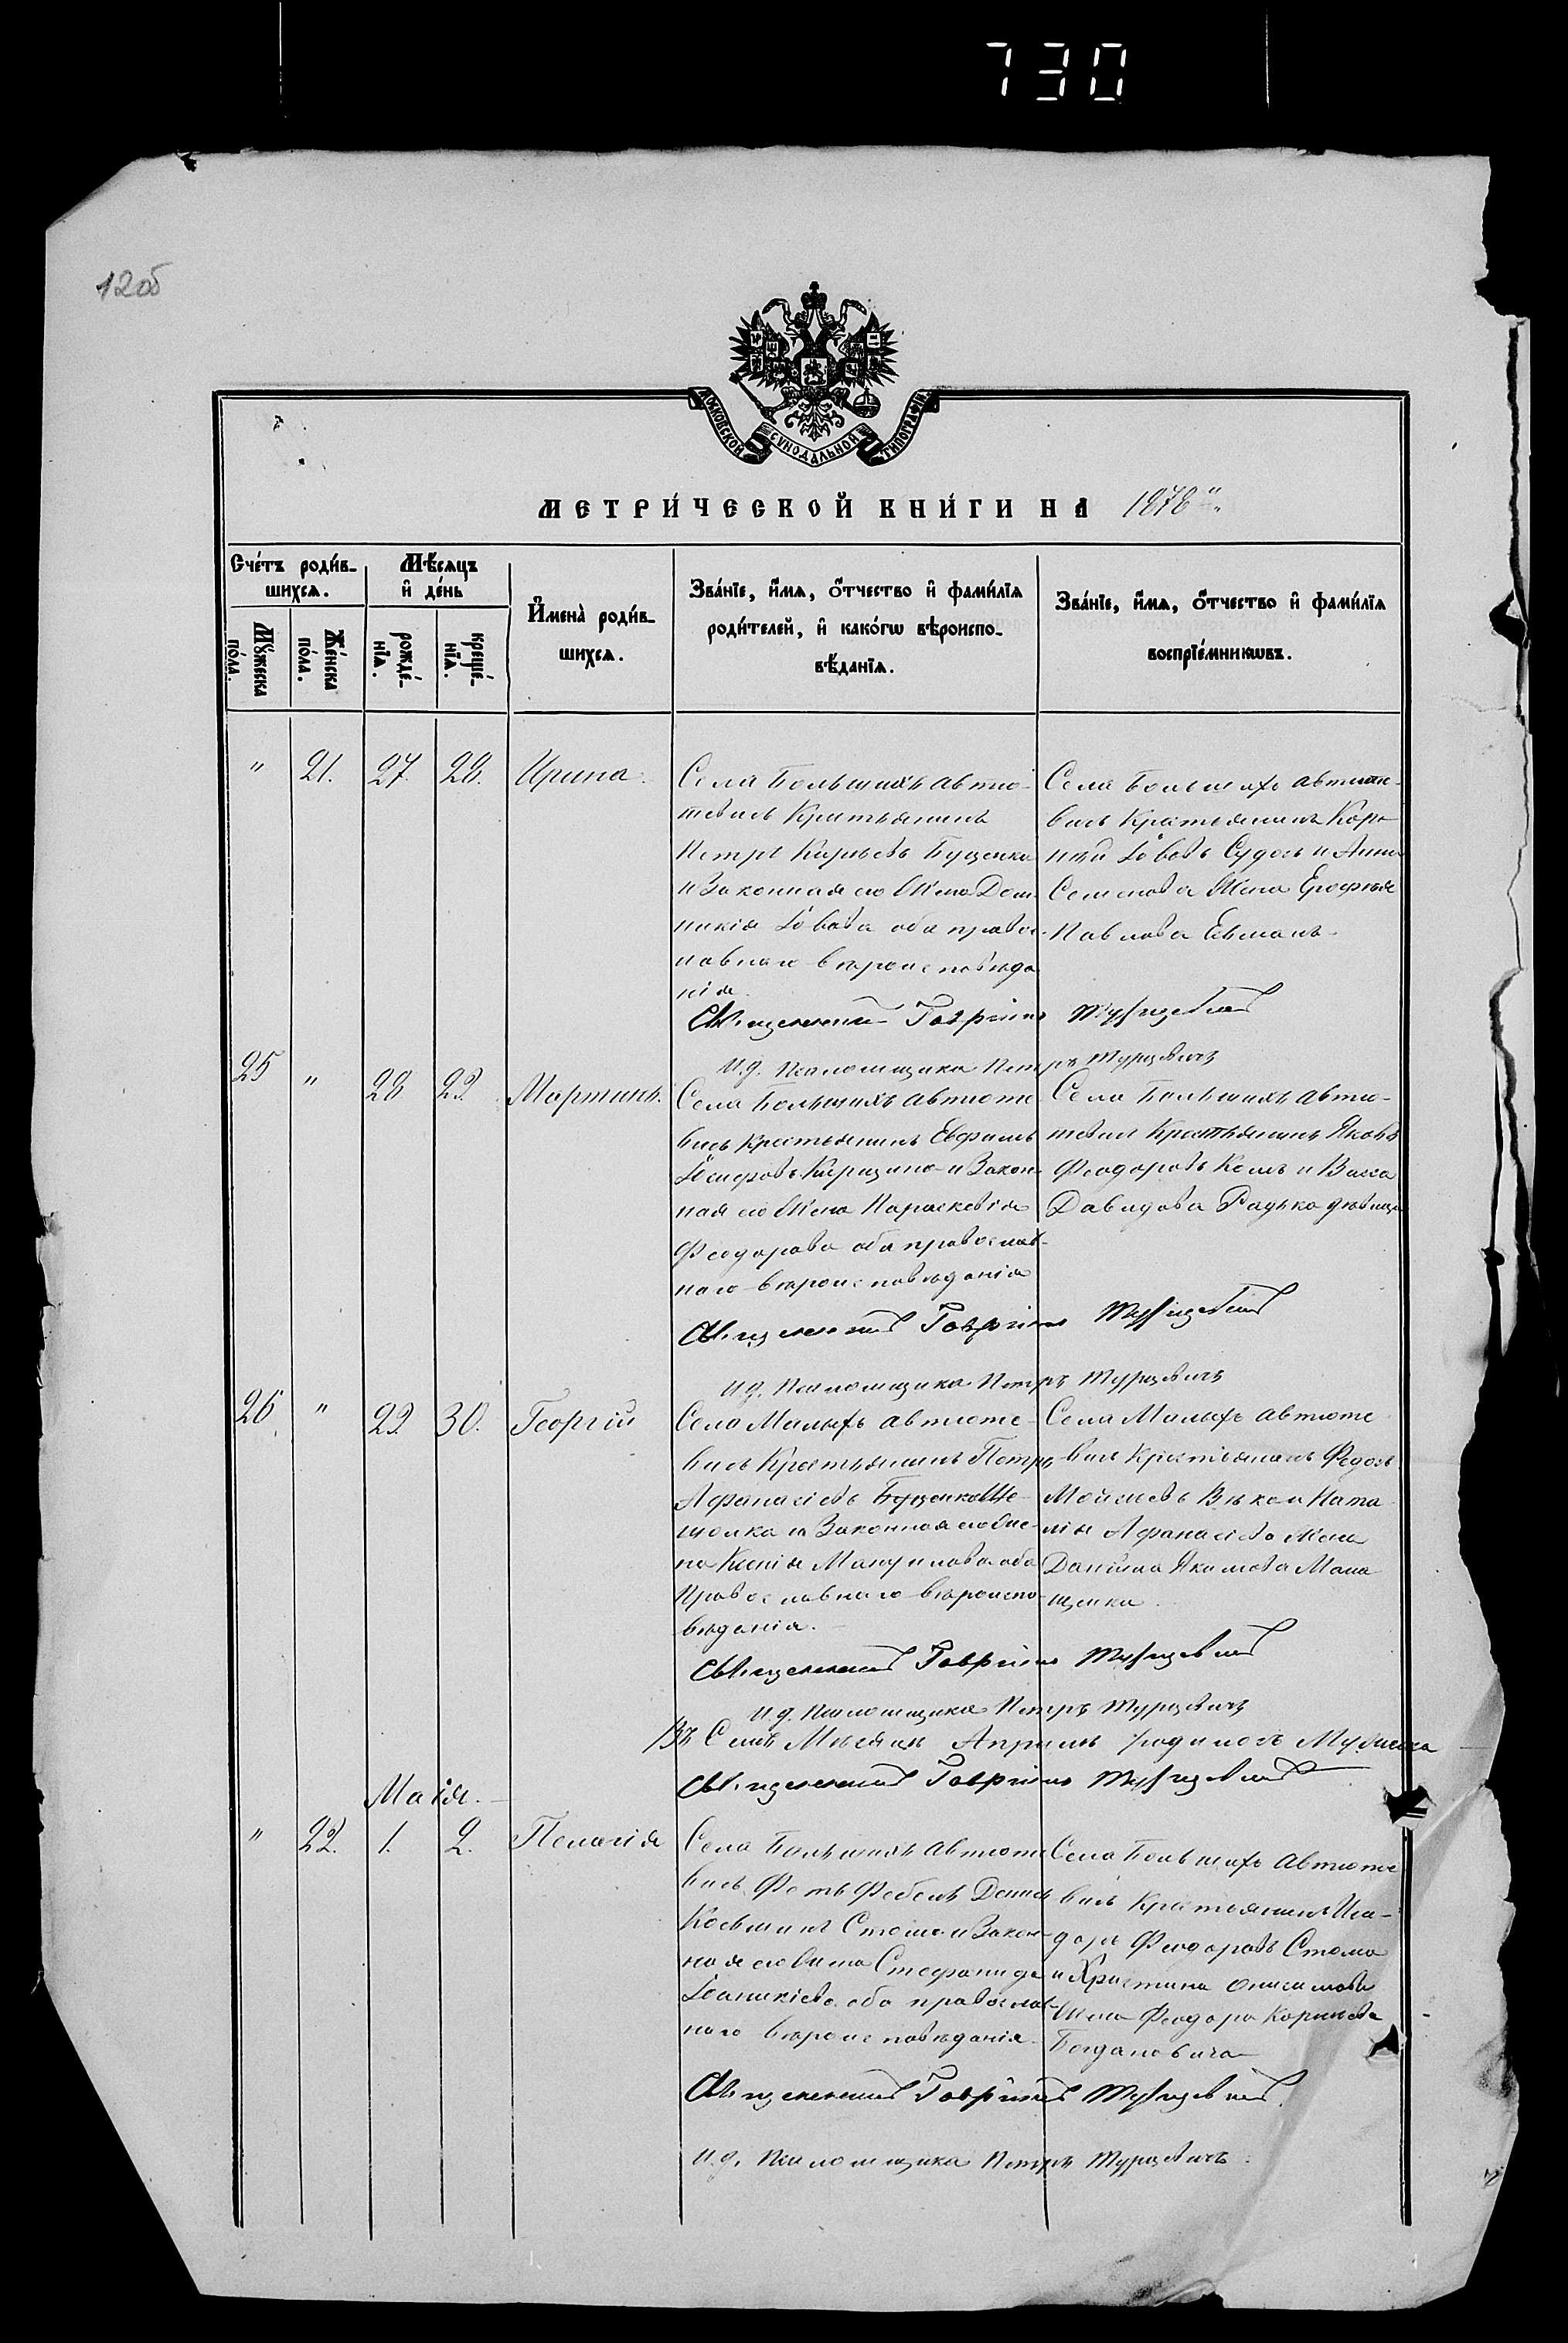 730
12об
МОСКОВСКОЙ СѴНОДАЛЬНОЙ ТИПОГРАФІИ
МЕТРИ́ЧЕСКОЙ КНИ́ГИ НА 1878
Сче́тъ роди́в-
шихсѧ.
Мѣ́сѧцъ
и҆ де́нь
Мꙋ́жеска
по́ла.
Же́нска
по́ла.
рожде́-
нїѧ.
креще́-
нїѧ.
И҆мена̀ роди́в-
шихсѧ.
Зва́нїе, и҆́мѧ, ѻ҆́тчество и҆ фами́лїѧ
роди́телей, и҆ како́гѡ вѣроиспо-
вѣ́данїѧ.
Зва́нїе, и҆́мѧ, ѻ҆́тчество и҆ фами́лїѧ
воспрїе́мникѡвъ.
" 21. 27. 28. Ирина.
Села Большихъ автю-
тевичъ Крестьянинъ
Петръ Карповъ Буценко
и Законная его Жена Дом-
никія обa правос-
лавнаго вѣроисповѣда
нія.
Села Большихъ автюте-
вичъ Крестьянинъ Кор-
нѣй и Анна
Семенова Жена Ерофѣя
Павлова
Священникъ Гавріилъ Турцевичъ
И.д. Псаломщика Петръ Турцевичъ
25 " 28 29 Мартинъ.
Села Большихъ автюте
вичъ Крестьянинъ Евфимъ
Іосифовъ и Закон-
ная его Жена Параскевія
Феодорова оба православ-
наго вѣроисповѣданія
Села Большихъ автю-
тевичъ Крестьянинъ Яковъ
Феодоровъ и Васса
Давидова Радько дѣвица
Священникъ Гавріилъ Турцевичъ
И.д. Псаломщика Петръ Турцевичъ
26 " 29 30. Георгій
Села Малыхъ автюте-
вичъ Крестьянинъ Петръ
Афанасіевъ
и Законная его Же-
на Ксенія Мануилова оба
Православнаго вѣроиспо-
вѣданія.
Села Малыхъ автюте
вичъ Крестьянинъ Федоръ
Мойсеевъ и Ната
лія Афанасіева Жена
Даніила Якимова
Священникъ Гавріилъ Турцевичъ
И.д. Псаломщика Петръ Турцевичъ
Въ Семъ Мѣсяцѣ Априлѣ родилось Мужеска
Священникъ Гавріилъ Турцевичъ
Маія.
" 22. 1. 2. Пелагія
Села Большихъ автюте
вичъ Денисъ
Косьминъ Стома и Закон-
ная его Жена Стефанида
Іоаникіева оба православ-
наго вѣроисповѣданія
Села Большихъ автюте
вичъ Крестьянинъ Иси-
доръ Феодоровъ Стома
и Христина Онисимова
Жена Феодора Корнѣева
Богдановича
Священникъ Гавріилъ Турцевичъ.
И.д. Псаломщика Петръ Турцевичъ.